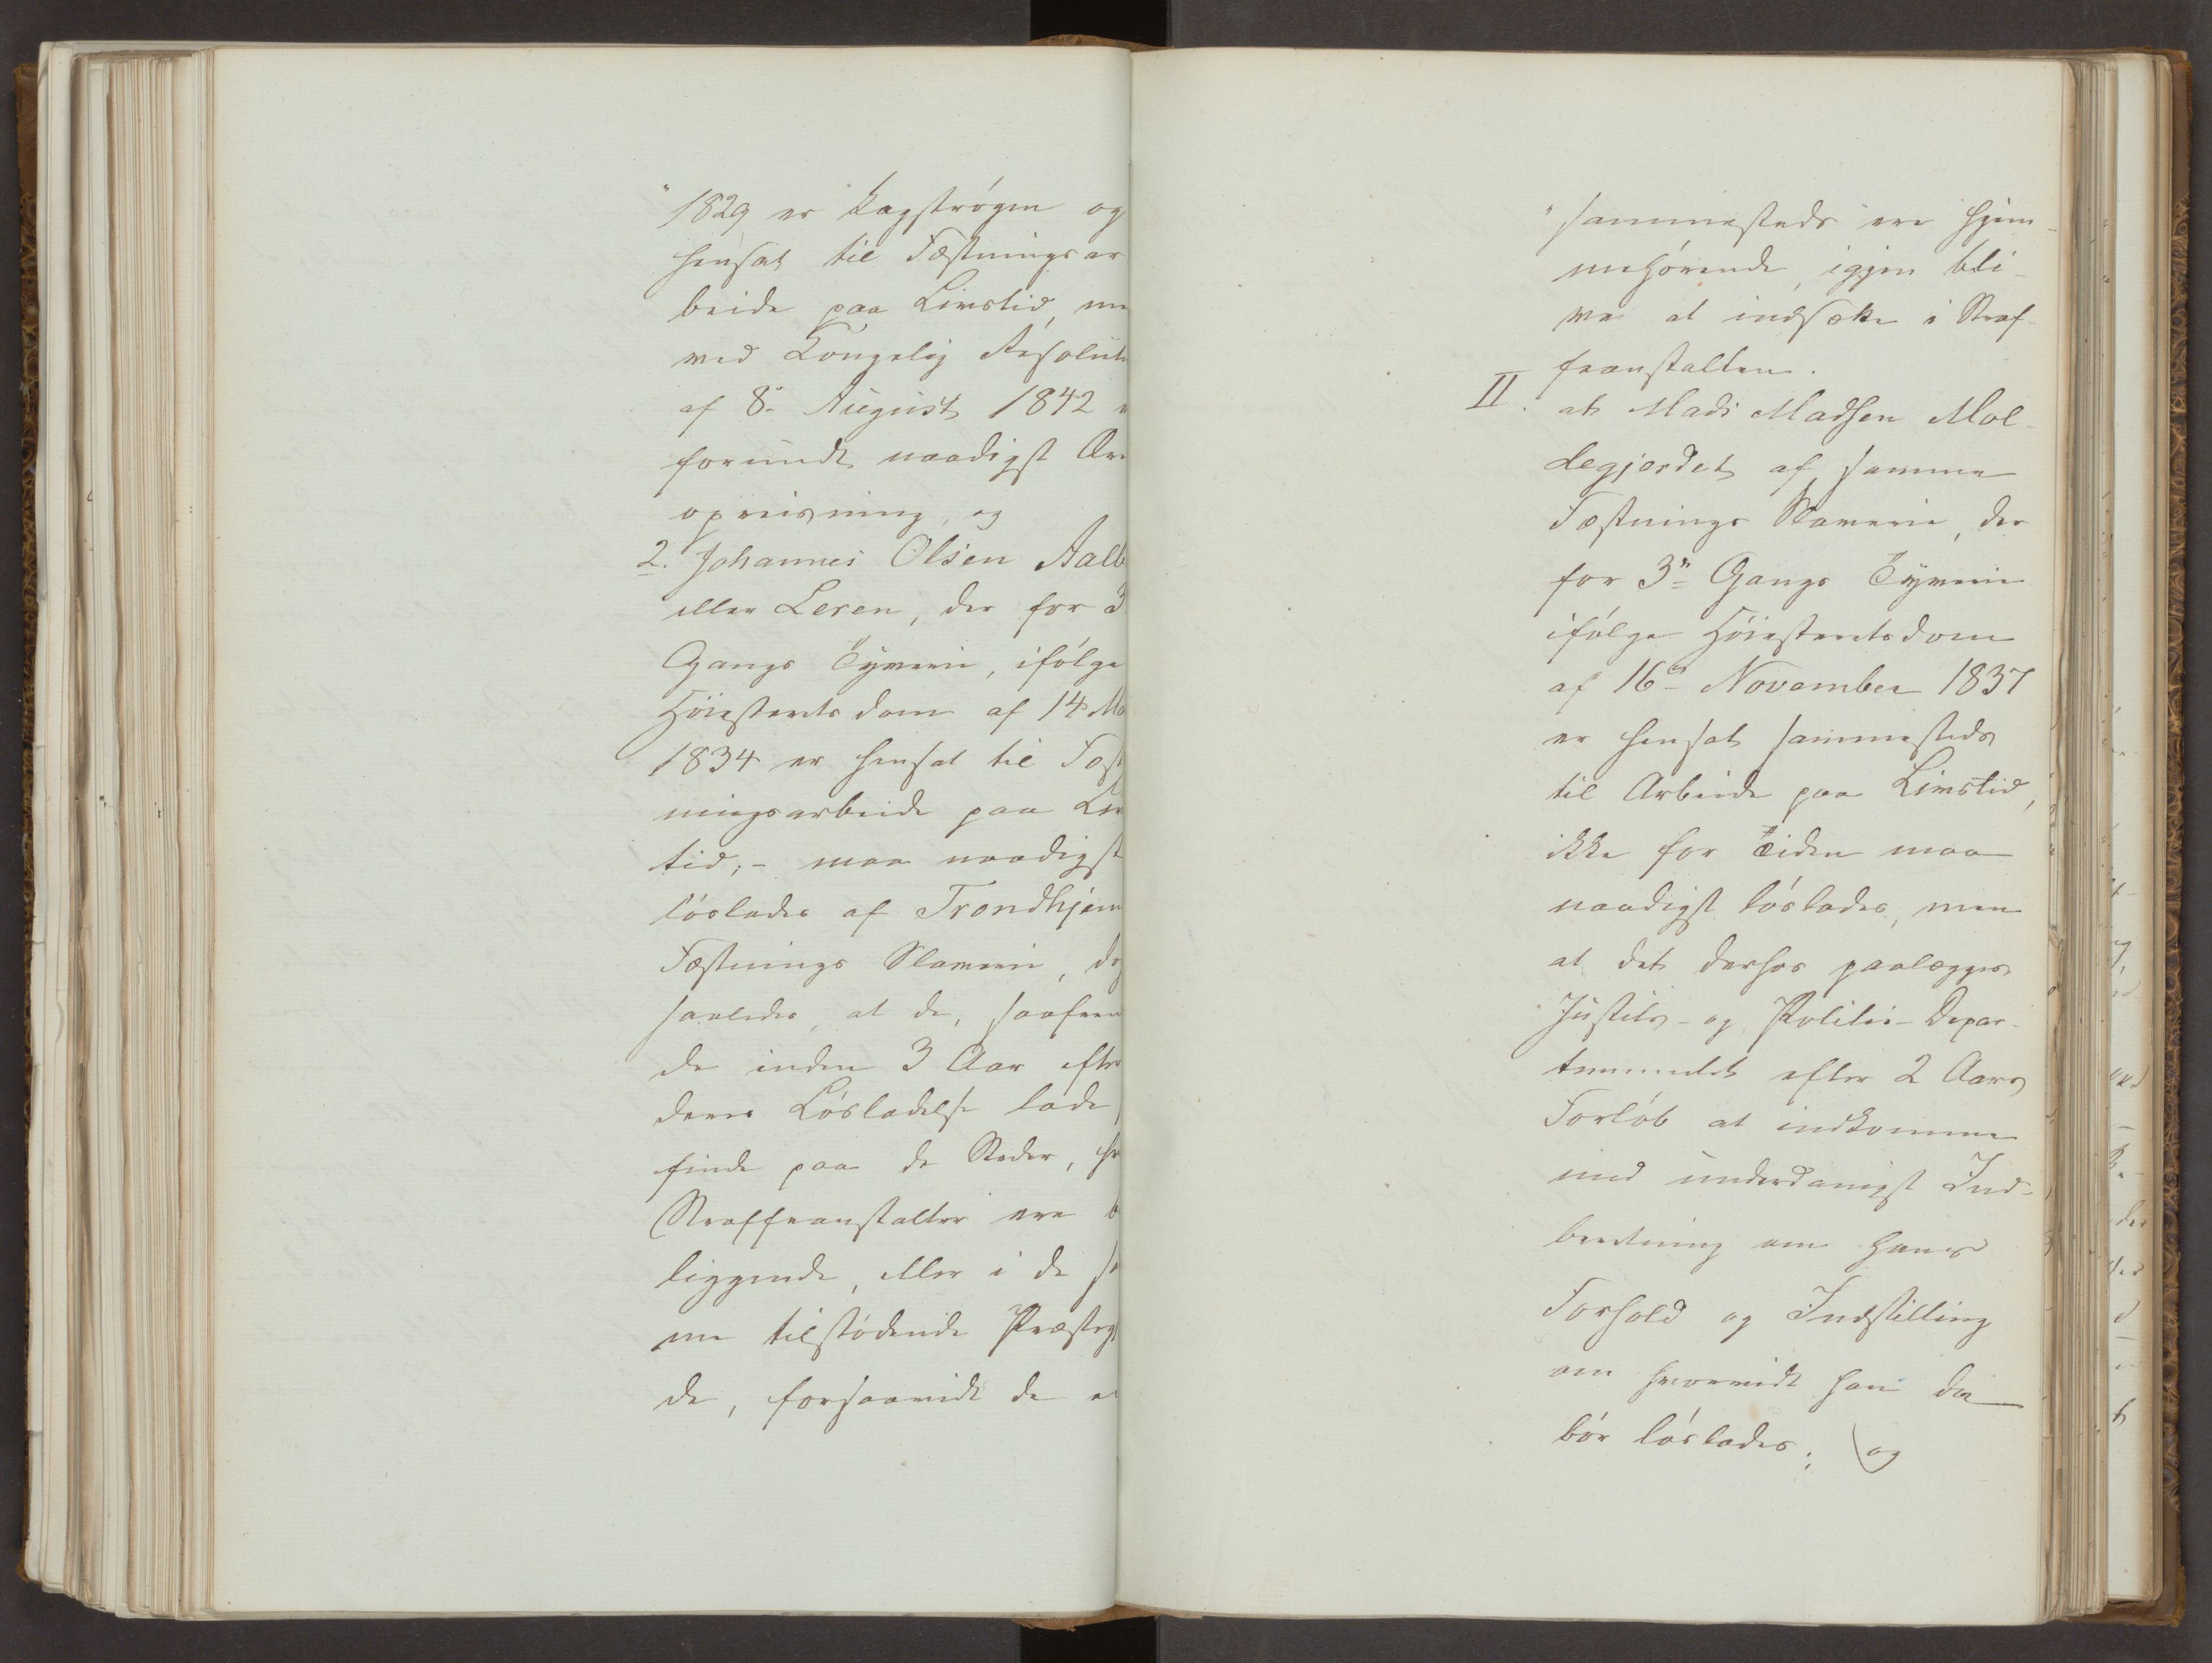 "1829 er kagstrøgen og
hensat til Fæstningsar
beide paa Livstid, me
ved Kongelig Resoluti
af 8de August 1842 e
forundt naadigst Ær
opreisning, og
2. Johannes Olsen Aalb
eller Leren, der for 3
Gangs Tyverie, ifølge
Høiesteretsdom af 14 Ma
1834 er hensat til Fæst
ningsarbeide paa Liv
tid; - maa naadigst
løslades af Trondhjem
Fæstnings Slaverie, do
saaledes, at de, saafrem
de inden 3 Aar efter
deres Løsladelse lade
finde paa de Steder, hv
Straffeanstalter ere b
liggende, eller i de sa
me tilstødende Præstegj
de, forsaavidt de ei
"sammesteds ere hjem-
mehørende, igjen bli-
ve at indsætte i Straf-
feanstalten.
II. at Mads Madsen Mol-
degjerdet af samme
Fæstnings Slaverie, der
for 3die Gangs Tyverie
ifølge Høiesteretsdom
af 16de November 1837
er hensat sammesteds
til Arbeide paa Livstid,
ikke for Tiden maa
naadigst løslades, men
at det derhos paalægges
Justits- og Politie-Depar-
tementet efter 2 Aars
Forløb at indkomme
med underdanigst Ind-
beretning om hans
Forhold og Indstilling
om hvorvidt han da
bør løslades; og